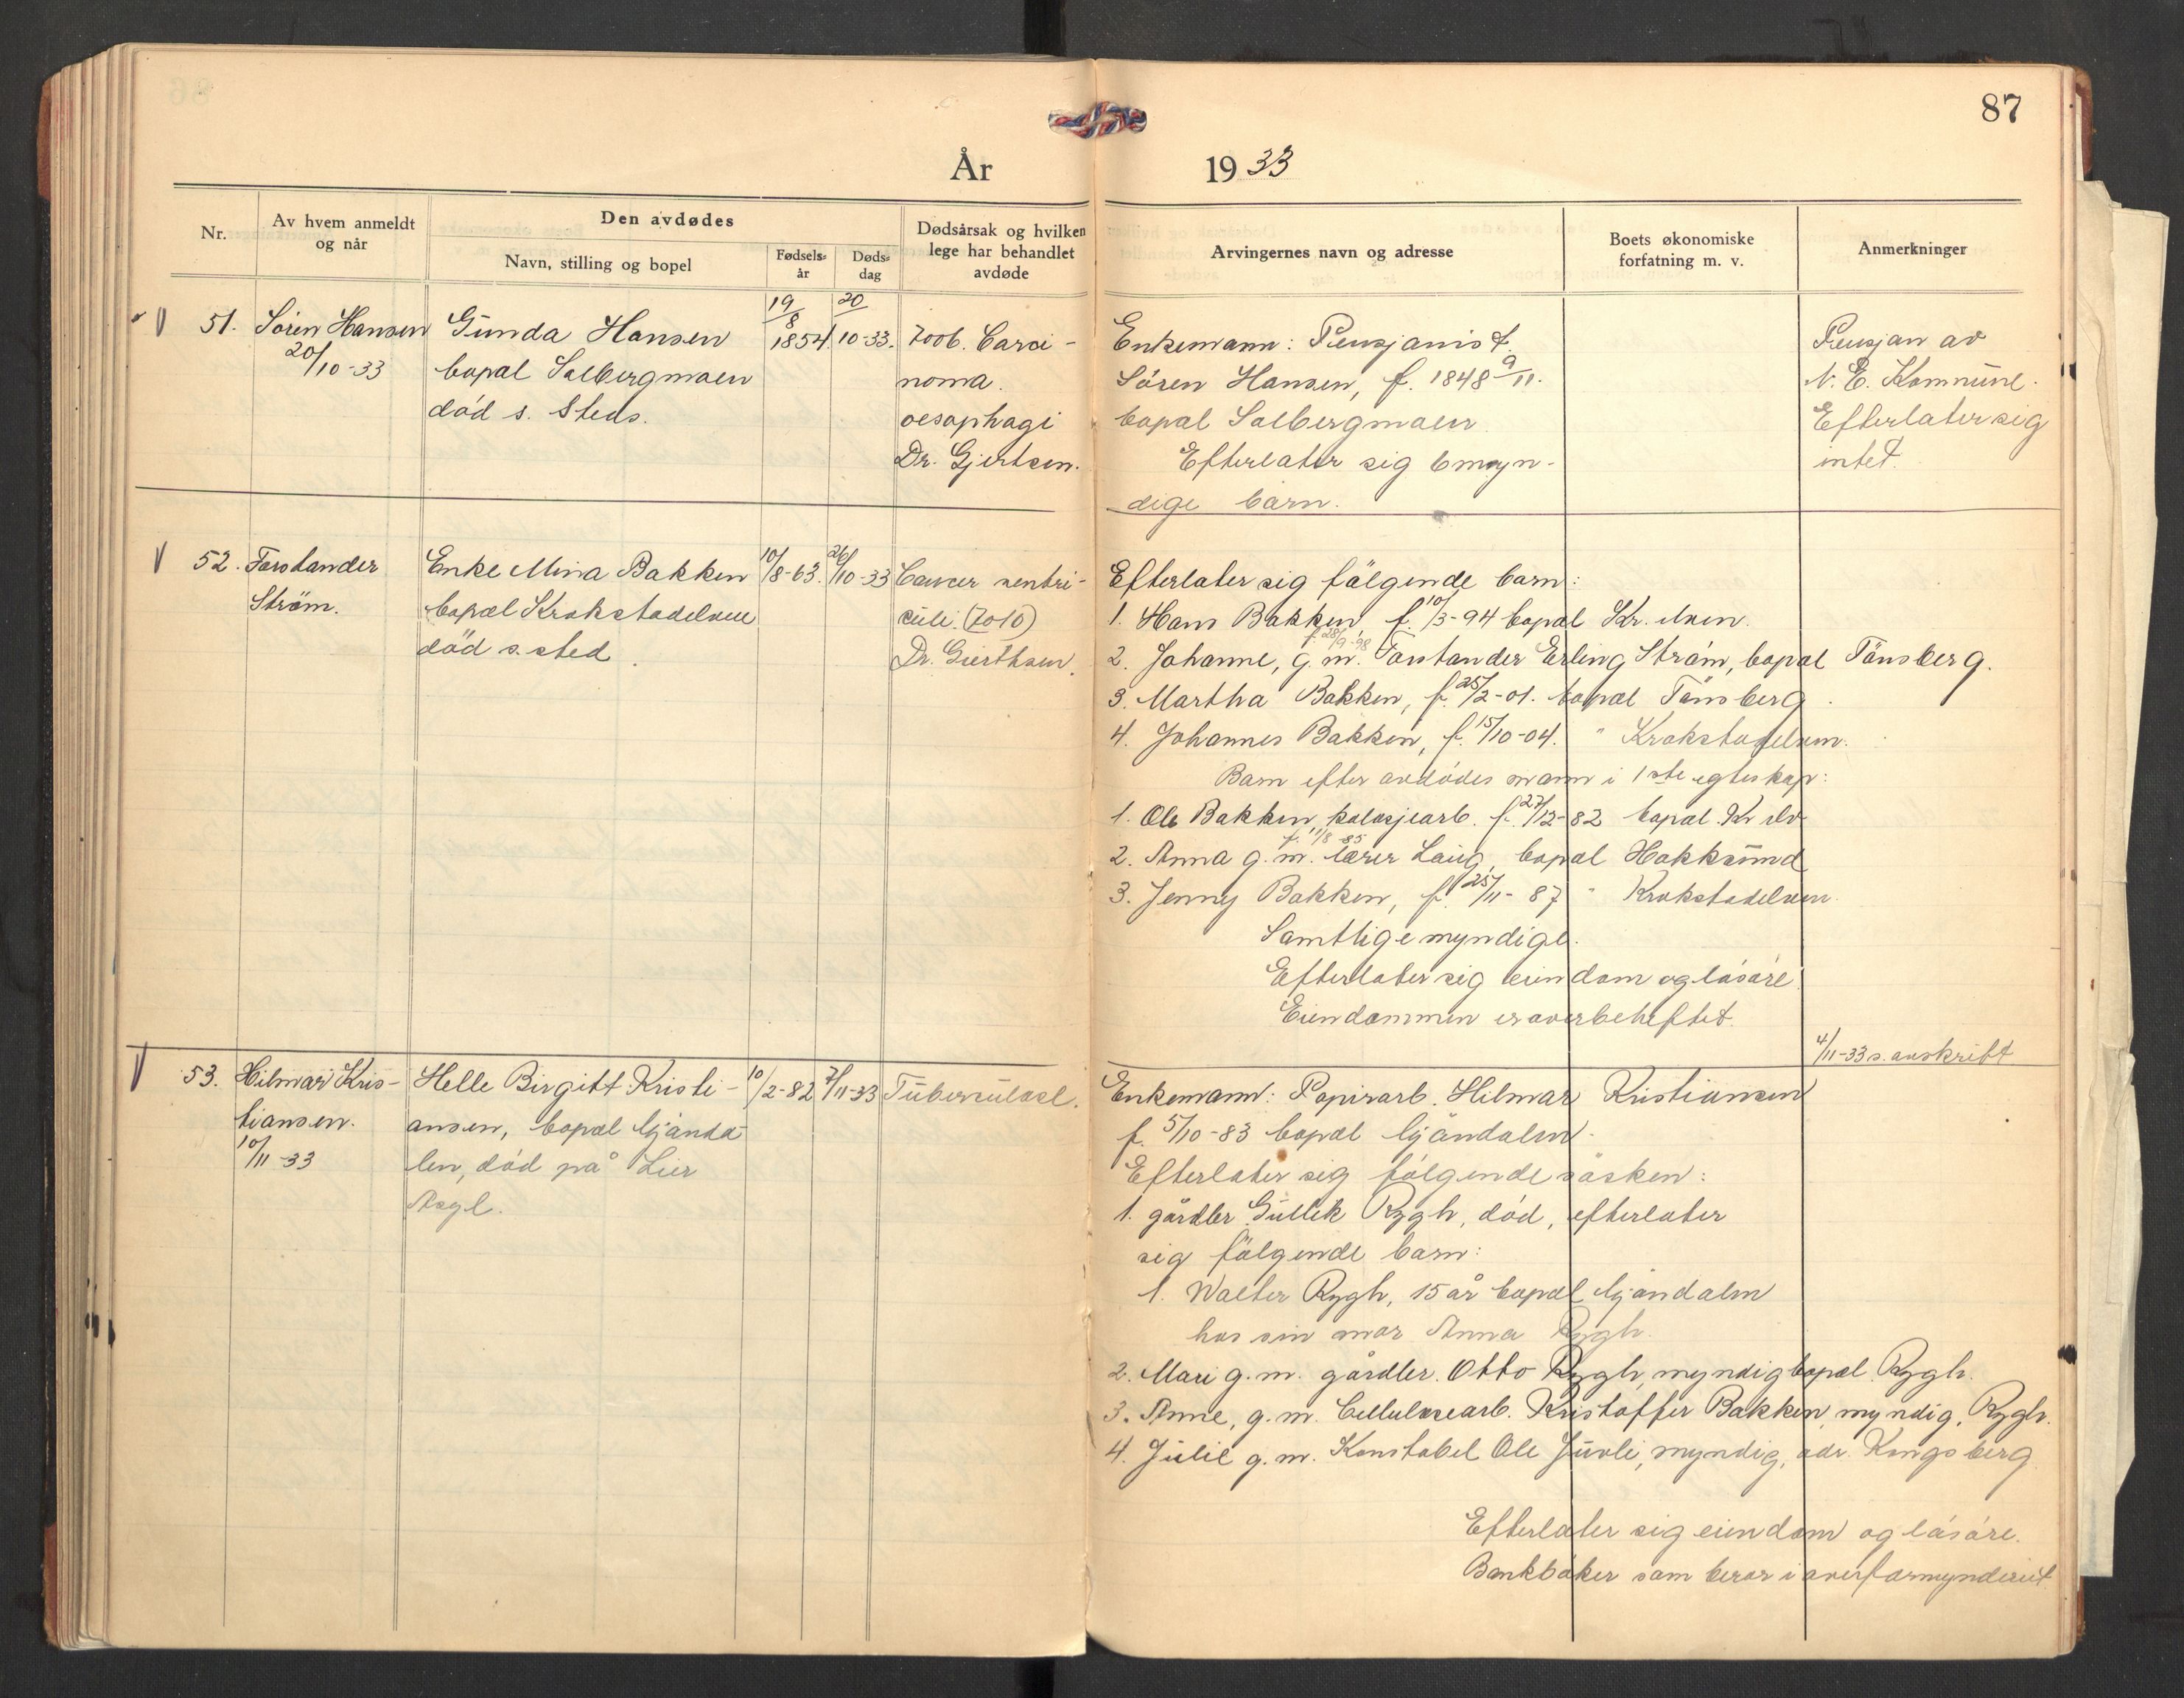 87
År 1933
Nr.
Av hvem anmeldt
og når
Den avdødes
Navn, stilling og bopel
Fødsels=
år
Døds=
dag
Dødsårsak og hvilken
lege har behandlet
avdøde
Arvingernes navn og adresse
Boets økonomiske
forfatning m. v.
Anmerkninger
51.
Sören Hansen
20/10-33
Gunda Hansen
bopæl Solbergmoen
död s. Steds.
19/8
1854.
20/
10-33.
Carci-
noma.
oesophagi
Dr. Gjertsen.
Enkemann: Pensjonist
Sören Hansen, f. 1848 9/11.
bopæl Solbergmoen
Efterlater sig 6 myn-
dige barn.
Pensjon av
N. E. Kommune.
Efterlater sig
intet.
52.
Forstander
Ström.
Enke Mina Bakken
bopæl Krokstadelven
död s. sted.
10/8-63.
26/10-33
Cancer ventri-
culi. (7010)
Dr. Gierthsen.
Efterlater sig fölgende barn:
1. Hans Bakken f. 10/3-94 bopæl Kr. elven.
f. 28/9-98
2. Johanne, g. m. Forstander Erling Ström, bopæl Tönsberg.
3. Martha Bakken, f. 25/2-01. bopæl Tönsberg.
4. Johannes Bakken, f. 15/10-04. " Krokstadelven.
Barn efter avdödes mann i 1ste egteskap:
1. Ole Bakken, f. 27/12-82 bopæl Kr elv
f. 11/8 85
2. Anna g. m. lærer Laug, bopæl Hokksund
3. Jenny Bakken, f. 25/11-87 " Krokstadelven.
Samtlige myndige.
Efterlater sig eiendom og lösöre.
Eiendommen er overbeheftet.
4/11-33 s. avskrift
53.
Hilmar Kris-
tiansen.
10/11-33
Helle Birgitt Kristi-
ansen, bopæl Mjönda-
len, död på Lier
Asyl.
10/2-82
7/11-33
Tuberculose.
Enkemann: Papirarb. Hilmar Kristiansen
f. 5/10-83 bopæl Mjöndalen.
Efterlater sig fölgende sösken:
1. gårdbr. Gullik Rygh, död, efterlater
sig fölgende barn:
1. Walter Rygh, 15 år bopæl Mjöndalen
hos sin mor Anna Rygh.
2. Mari g. m. gårdbr. Otto Rygh, myndig bopæl Rygh.
3. Anne, g. m. Cellulosearb. Kristoffer Bakken, myndig, Rygh.
4. Julie g. m. Konstabel Ole Juvli, myndig, adr. Kongsberg
Efterlater sig eiendom og lösöre.
Bankböker som beror i overformynderiet